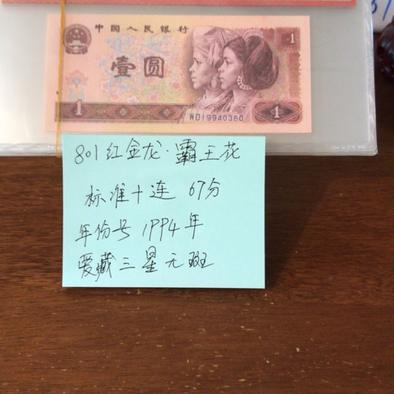 中国人民银行
1
壹圆
1
WD19940360
801红金龙·霸王花
标准十连 67分
年份号1994年
爱藏三星无斑